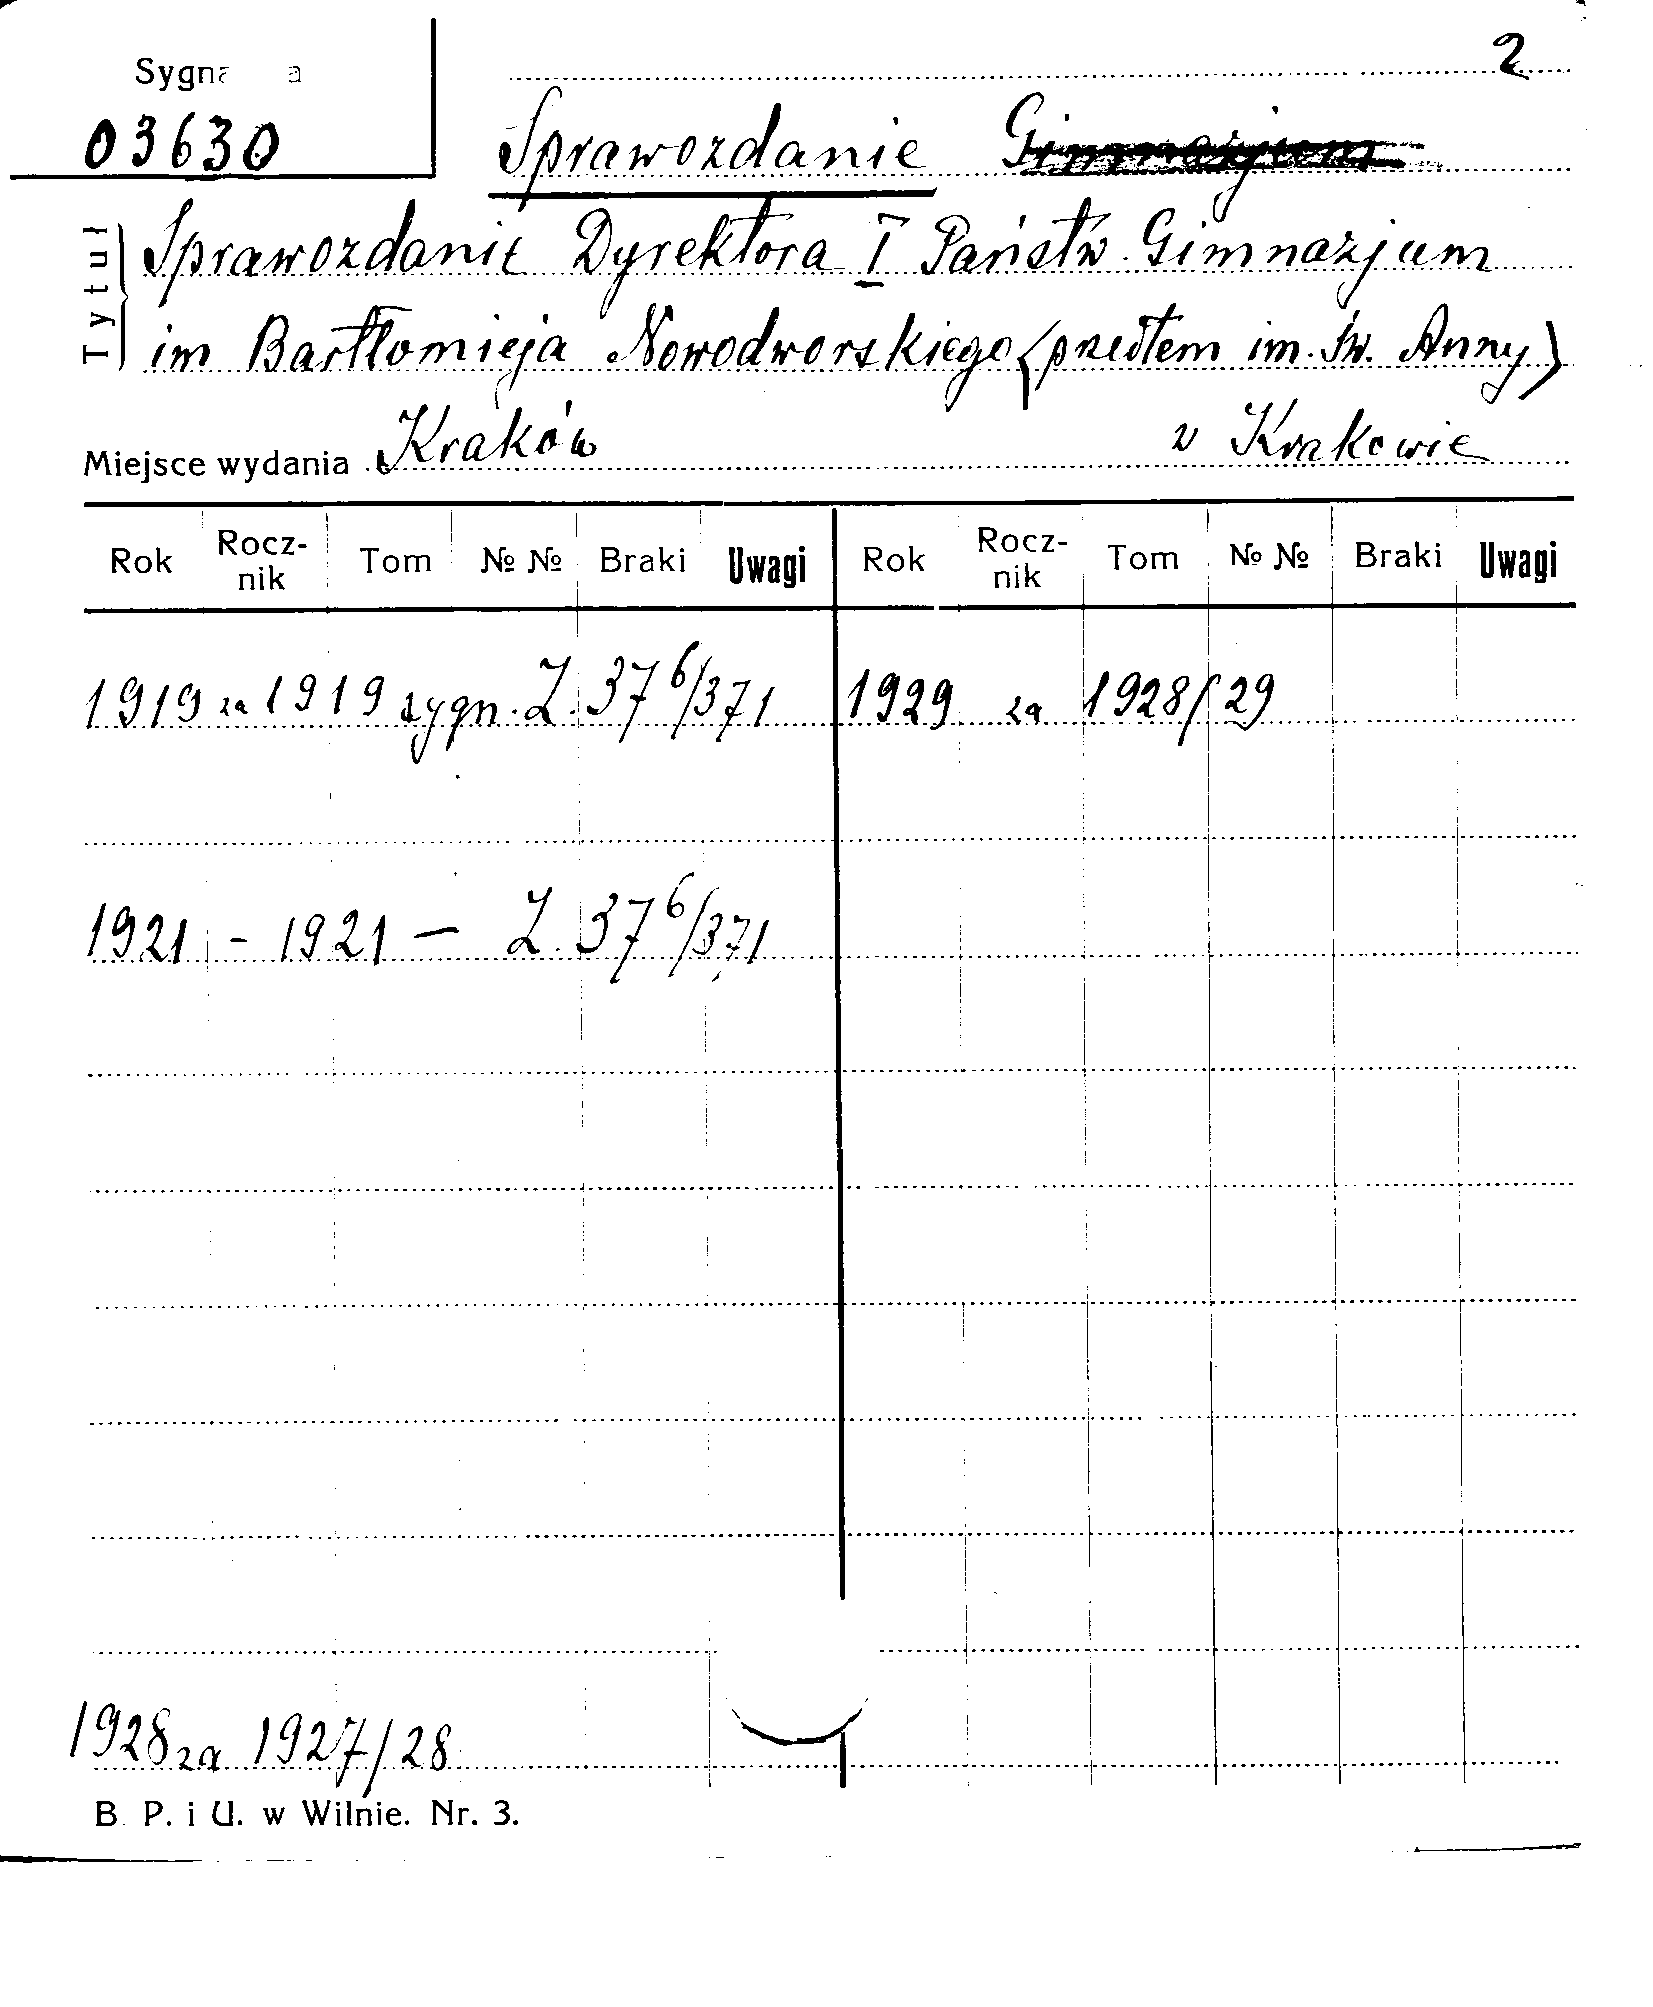 2
Sygna a
03630
Sprawozdanie Gimnazjum
Tytuł
Sprawozdanie Dyrektora I Państw. Gimnazjum
im Bartłomieja Nowodworskiego (przedtem im. Św. Anny)
Miejsce wydania Kraków w Krakowie
Rok Rocz-nik Tom № № Braki Uwagi Rok Rocz-nik Tom № № Braki Uwagi
1919 za 1919 sygn. Z. 37 6/371 1929 za 1928/29
1921 - 1921 — Z. 37 6/371
1928 za 1927/28
B. P. i U. w Wilnie. Nr. 3.